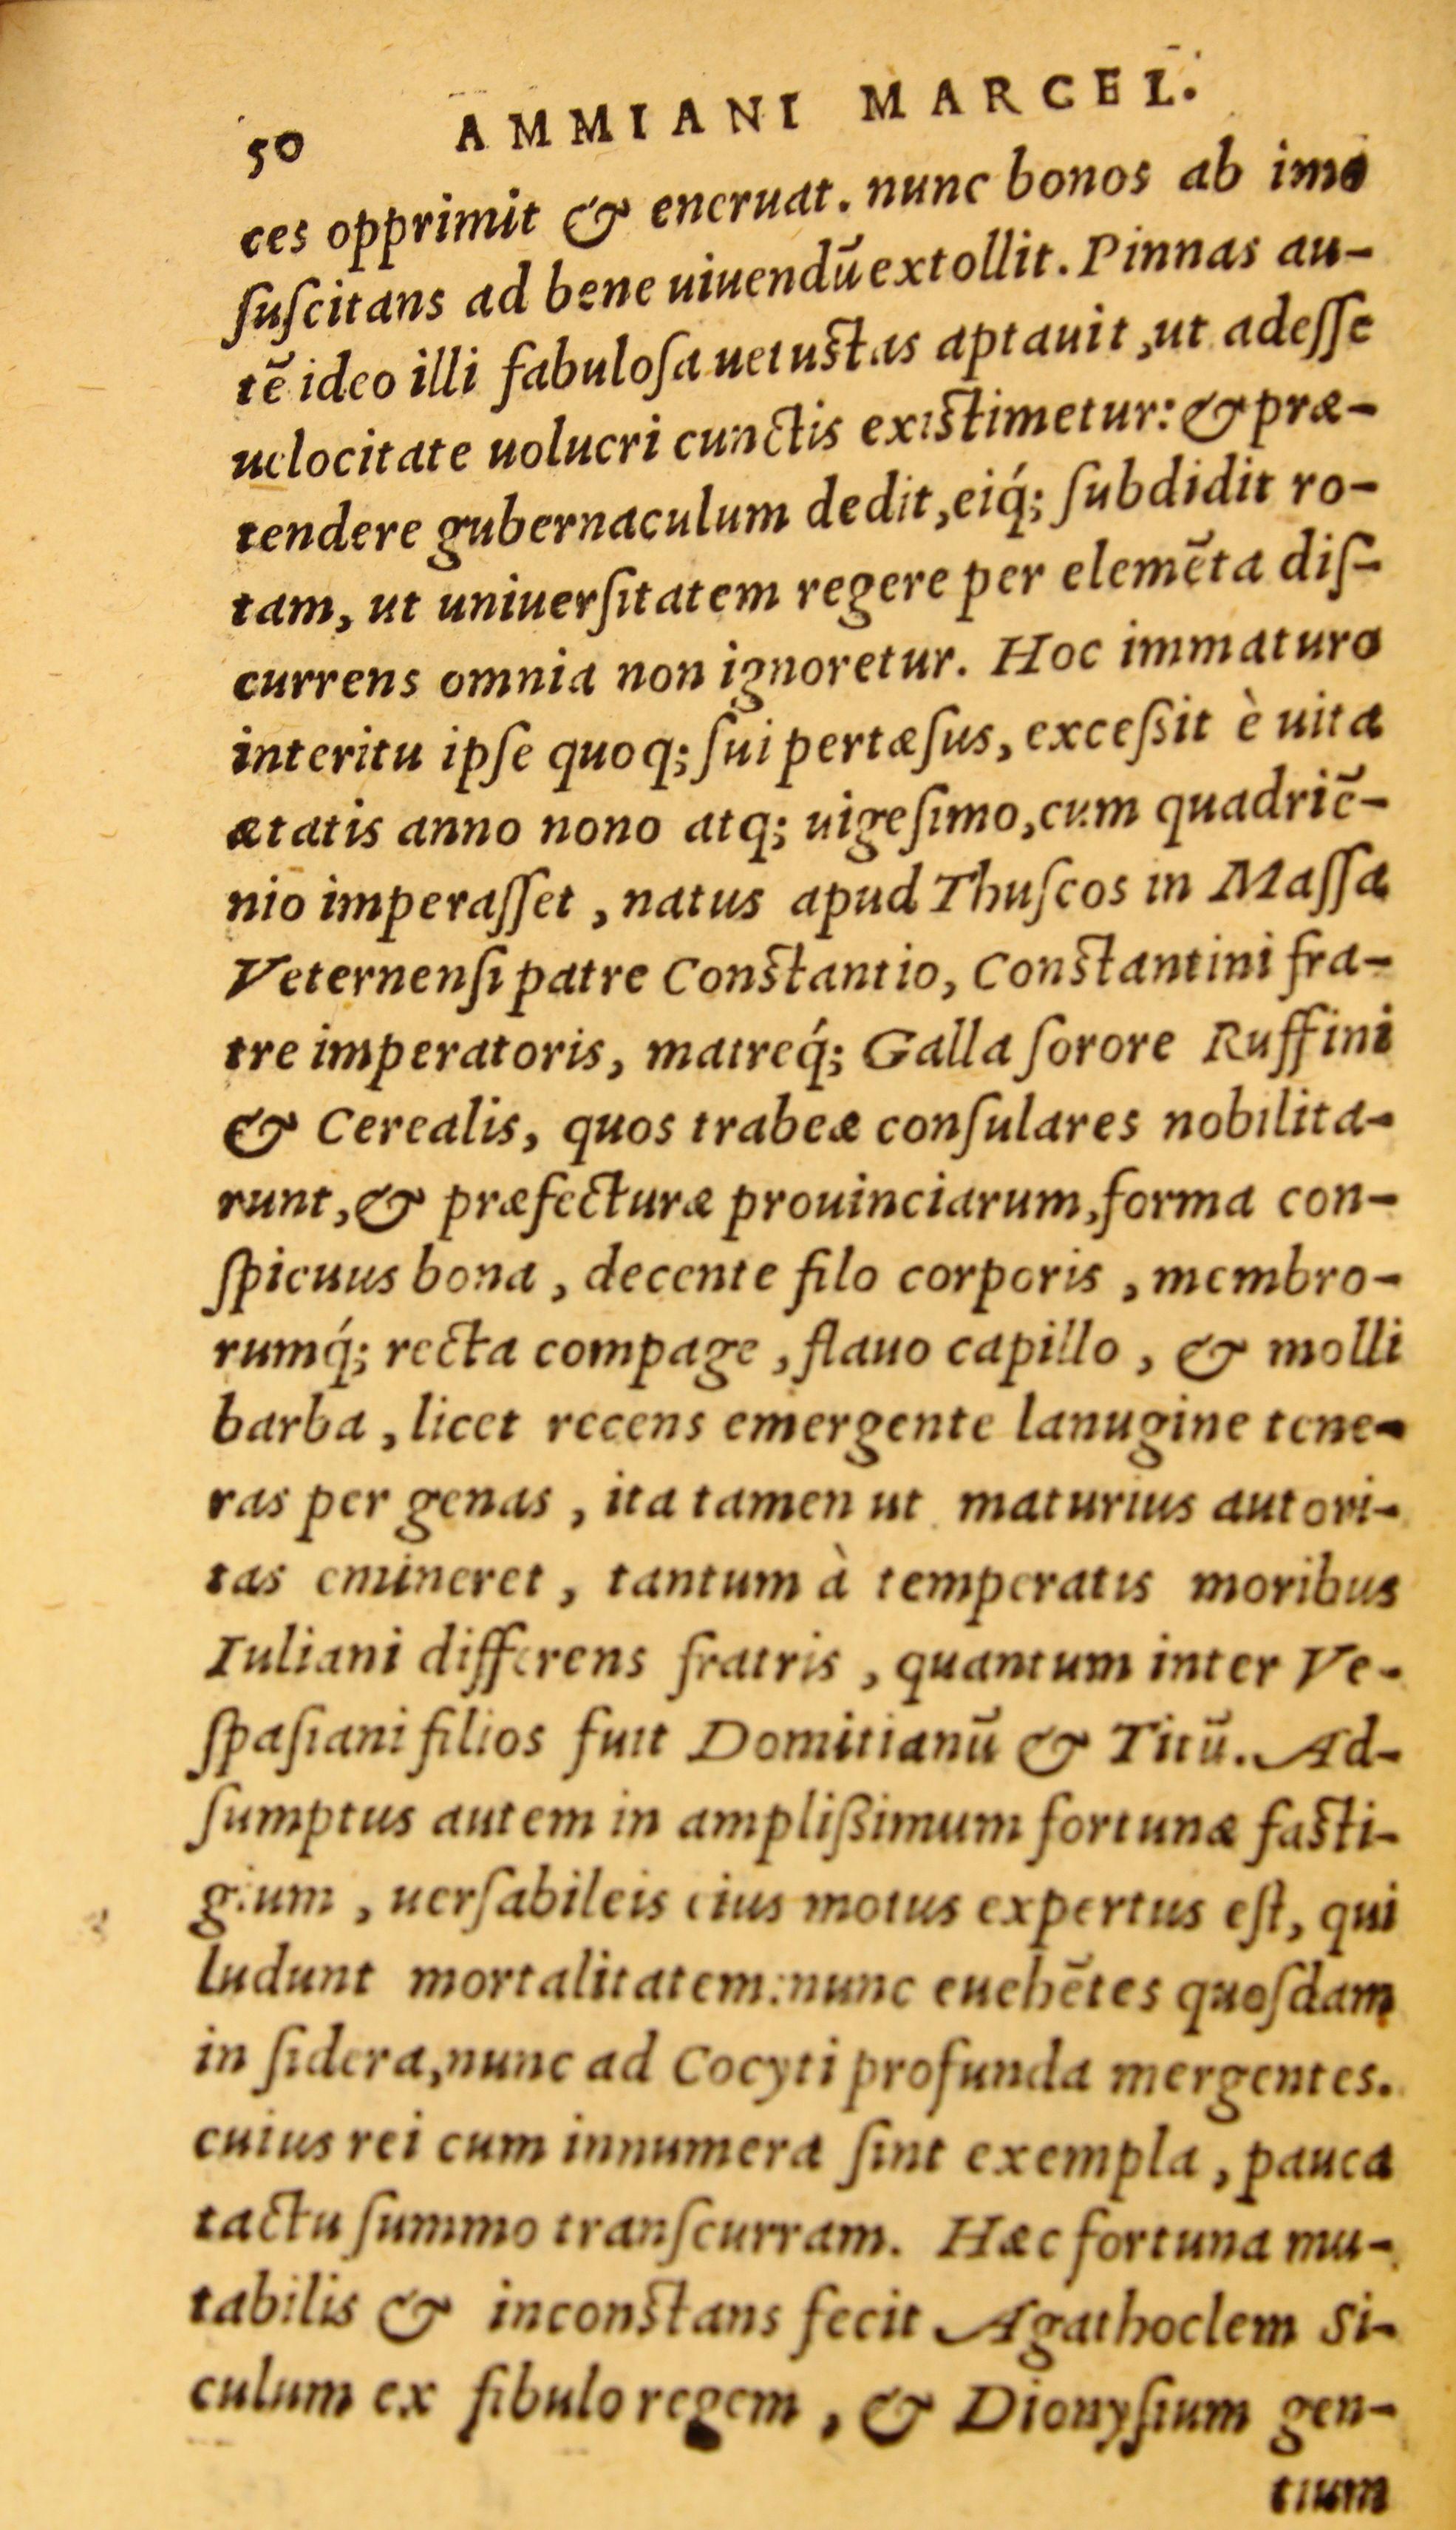 50 AMMIANI MARCEL.
ces opprimit & eneruat. nunc bonos ab imo
ſuſcitans ad bene uiuendū extollit. Pinnas au-
tē ideo illi fabuloſa uetuſtas aptauit, ut adeſſe
uelocitate uolucri cunctis exiſtimetur: & præ-
tendere gubernaculum dedit, eiq́; ſubdidit ro-
tam, ut uniuerſitatem regere per elemēta diſ-
currens omnia non ignoretur. Hoc immaturo
interitu ipſe quoq; ſui pertæſus, exceſsit è uita
ætatis anno nono atq; uigeſimo, cum quadriē-
nio imperaſſet, natus apud Thuſcos in Maſſa
Veternenſi patre Conſtantio, Conſtantini fra-
tre imperatoris, matreq́; Galla ſorore Ruffini
& Cerealis, quos trabeæ conſulares nobilita-
runt, & præfecturæ prouinciarum, forma con-
ſpicuus bona, decente filo corporis, membro-
rumq́; recta compage, flauo capillo, & molli
barba, licet recens emergente lanugine tene-
ras per genas, ita tamen ut maturius autori-
tas emineret, tantum à temperatis moribus
Iuliani differens fratris, quantum inter Ve-
ſpaſiani filios fuit Domitianū & Titū. Ad-
ſumptus autem in ampliſsimum fortunæ faſti-
gium, uerſabileis eius motus expertus eſt, qui
ludunt mortalitatem: nunc euehētes quoſdam
in ſidera, nunc ad Cocyti profunda mergentes.
cuius rei cum innumera ſint exempla, pauca
tactu ſummo tranſcurram. Hæc fortuna mu-
tabilis & inconſtans fecit Agathoclem Si-
culum ex fibulo regem, & Dionyſium gen-
tium